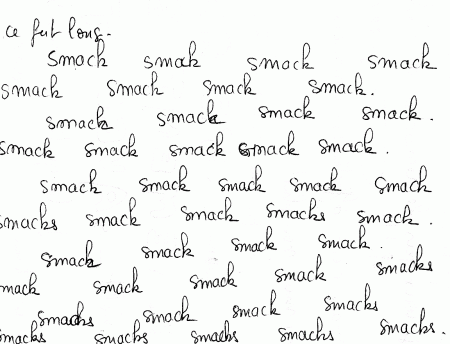 ce fut long.
Smack smack smack smack
smack smack smack smack.
smack smack smack smack.
smack smack smack smack smack.
smack smack smack smack smack
smacks smack smack smacks smack.
smack smack smack smack.
mack smack smack smack smacks
smacks smack smack smacks
smacks smacks smacks smacks smacks.